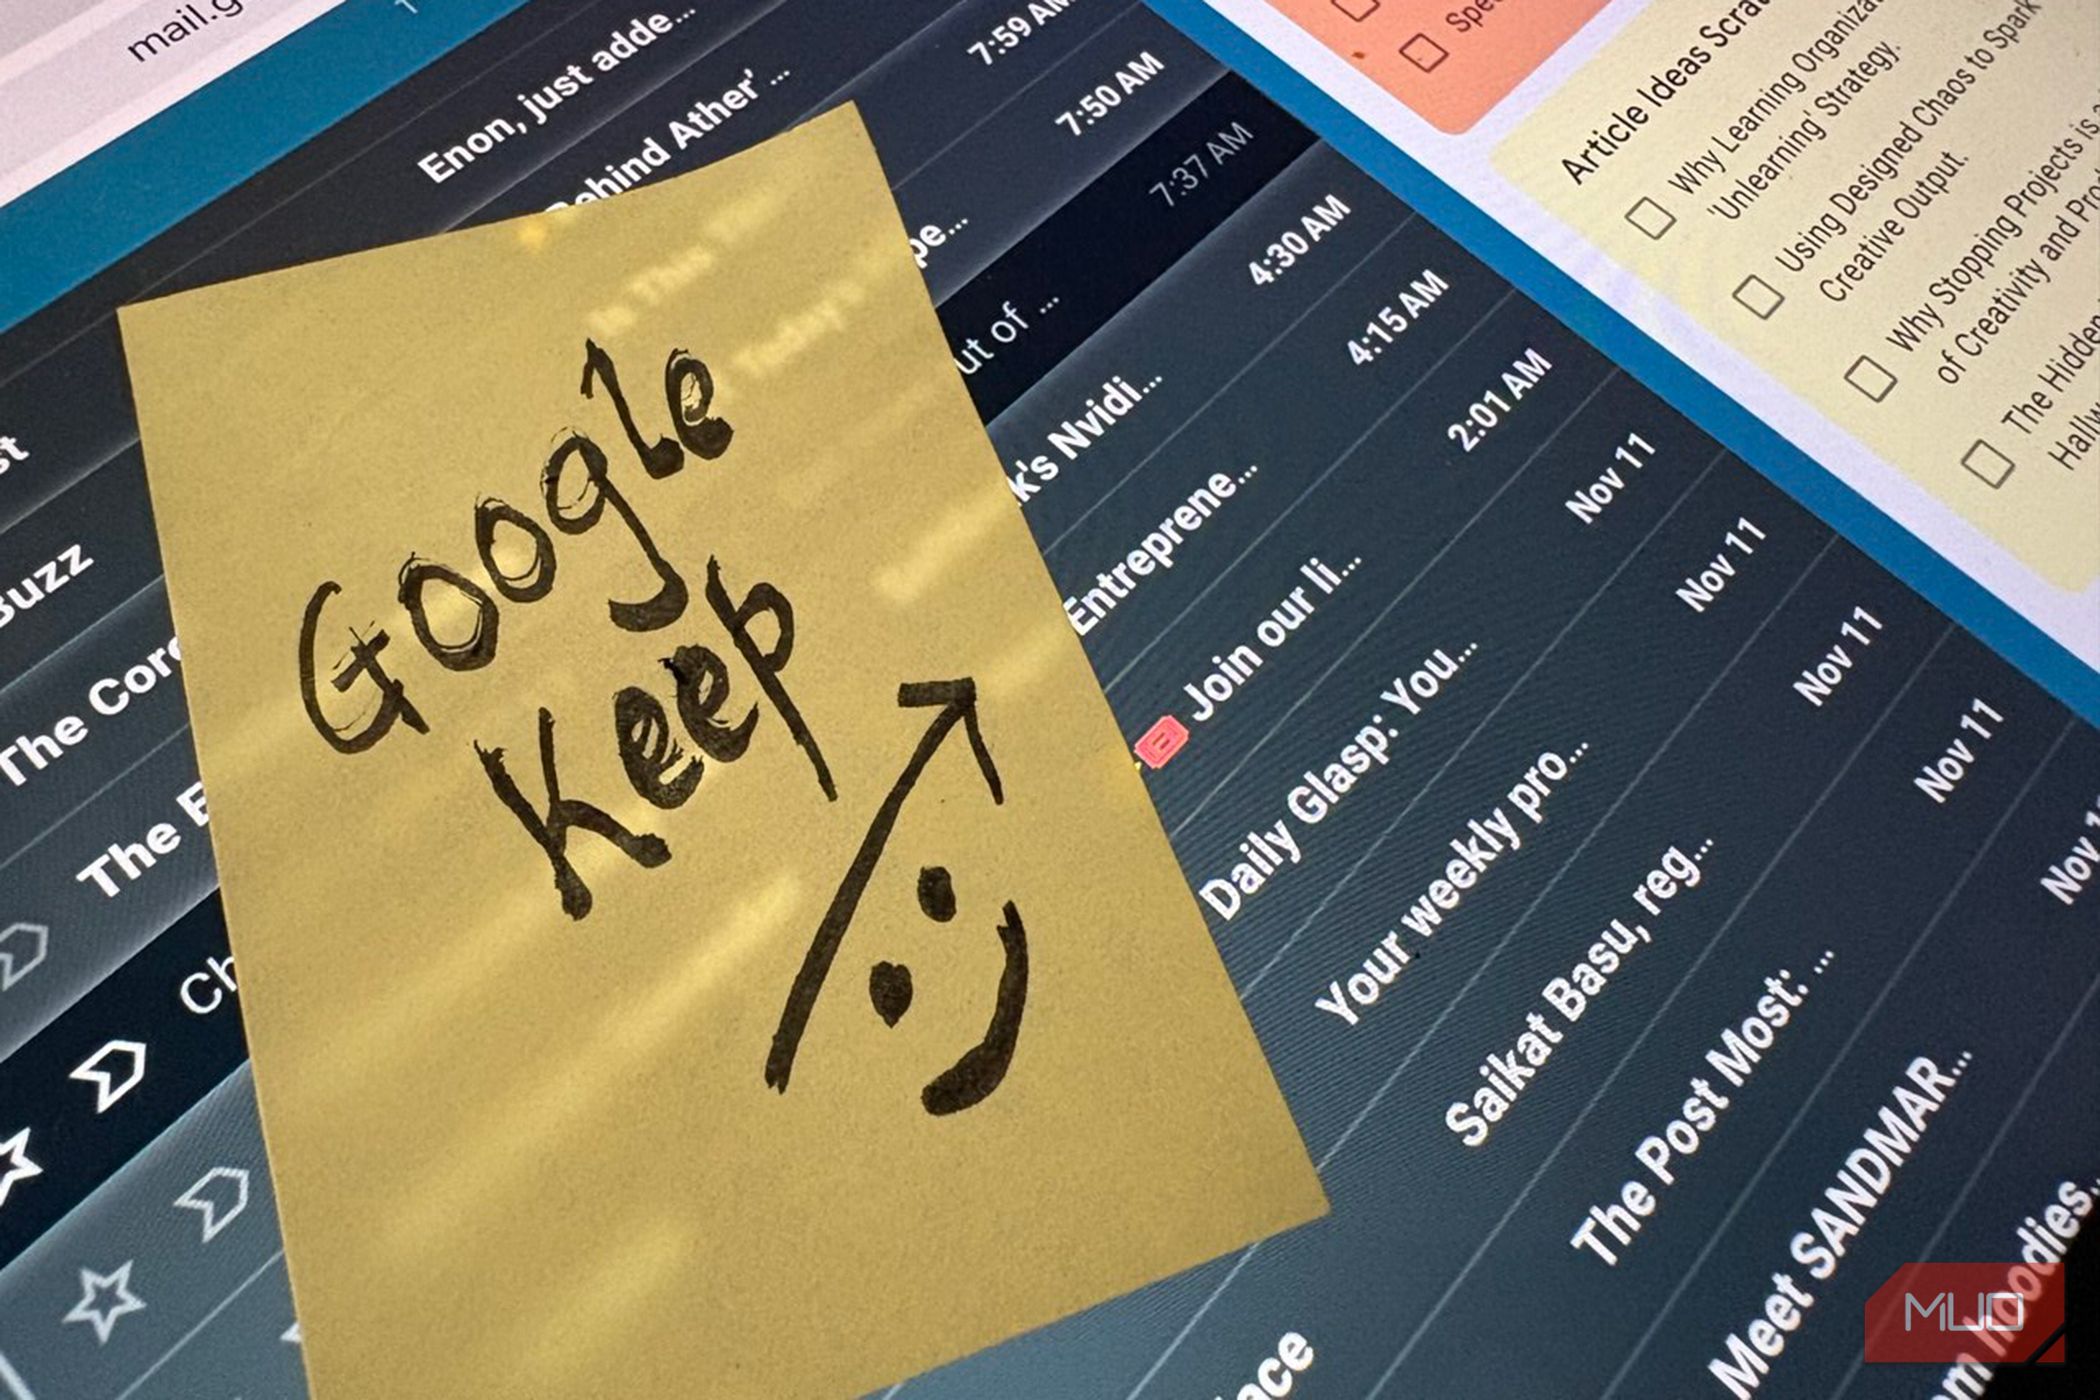 mail.g
Enon, just adde...
7:59 AM
Behind Ather' ...
7:50 AM
pe...
7:37 AM
ut of ...
4:30 AM
k's Nvidi...
4:15 AM
Entreprene...
2:01 AM
Join our li...
Nov 11
Daily Glasp: You...
Nov 11
Your weekly pro...
Nov 11
Saikat Basu, reg...
Nov 11
The Post Most: ...
Nov 1
Meet SANDMAR...
m hoodies...
ace
st
Buzz
The Core
The E
Ch
Google
Keep
In This
Today's
Spe
Article Ideas Scrat
Why Learning Organiza
'Unlearning' Strategy.
Using Designed Chaos to Spark
Creative Output.
Why Stopping Projects is
of Creativity and Prod
The Hidden
Hallw
MUO